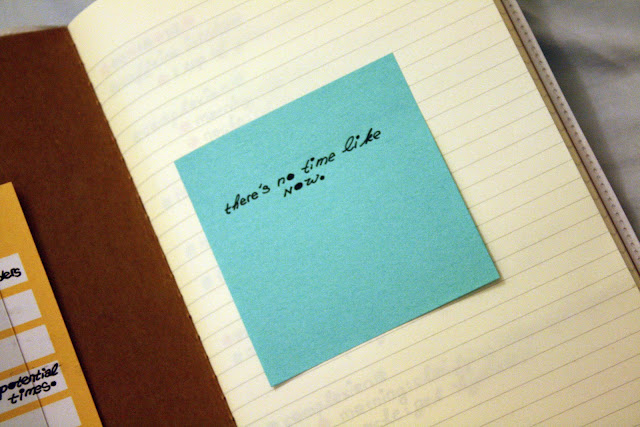 there's no time like
now.
potential
times.